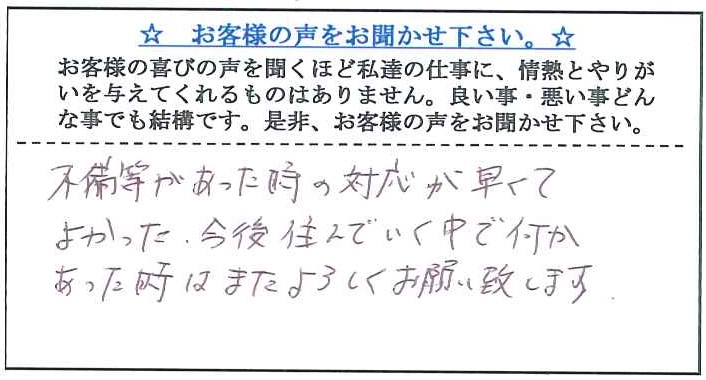 ☆ お客様の声をお聞かせ下さい。☆
お客様の喜びの声を聞くほど私達の仕事に、情熱とやりが
いを与えてくれるものはありません。良い事・悪い事どん
な事でも結構です。是非、お客様の声をお聞かせ下さい。
不備等があった時の対応が早くて
よかった。今後住んでいく中で何か
あった時はまたよろしくお願い致します。